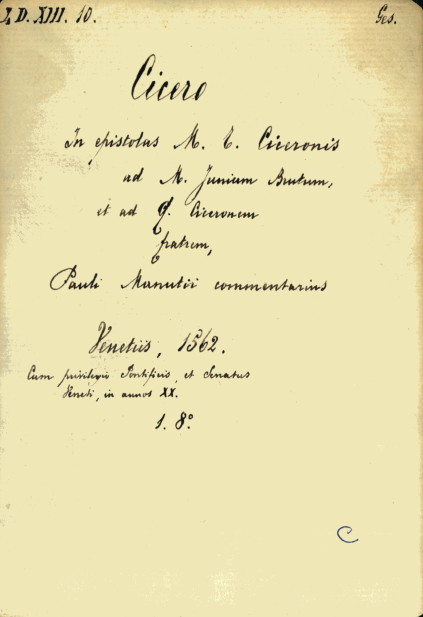 I, D. XIII. 10. Ges.
Cicero
In epistolas M. T. Ciceronis
ad M. Junium Brutum,
et ad Q. Ciceronem
fratrem,
Pauli Manutii commentarius
Venetiis, 1562.
Cum privilegio Pontificis, et Senatus
Veneti, in annos XX.
1. 8°
C